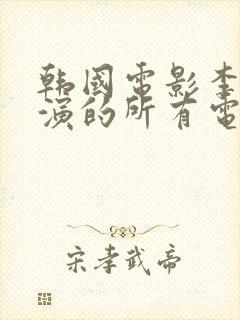 韩國電影李
演的所有電
宋孝武帝